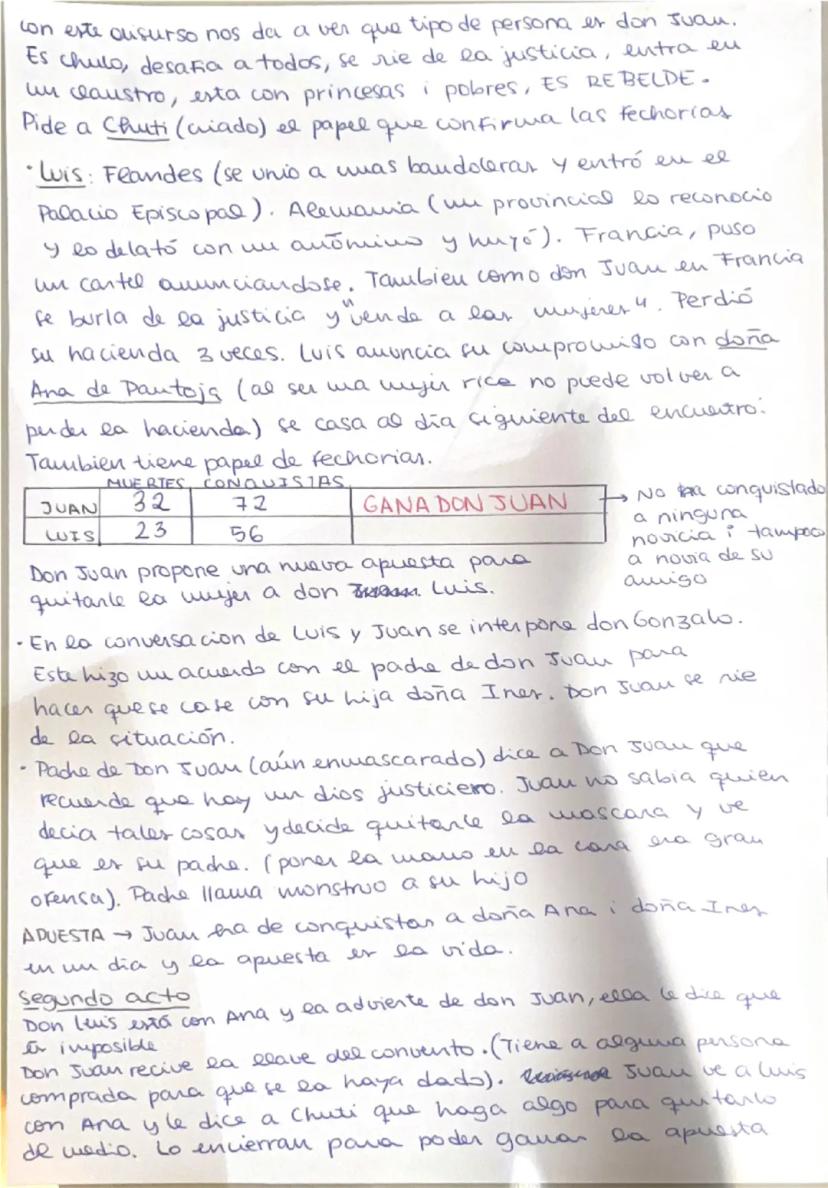 con este discurso nos da a ver que tipo de persona es don Juan.
Es chulo, desafia a todos, se rie de la justicia, entra en
un claustro, esta con princesas i pobres, ES REBELDE.
Pide a Chuti (criado) el papel que confirma las fechorias
· Luis: Flandes (se unio a unas bandoleras y entró en el
Palacio Episcopal). Alemania (un provincial lo reconocio
y lo delató con un anónimo y huyó). Francia, puso
un cartel anunciandose. Tambien como don Juan en Francia
se burla de la justicia y "vende a las mujeres". Perdió
su hacienda 3 veces. Luis anuncia su compromiso con doña
Ana de Pantoja (al ser una mujer rica no puede volver a
perder la hacienda) se casa al día siguiente del encuentro.
Tambien tiene papel de fechorias.
MUERTES CONQUISTAS
JUAN 32 72 GANA DON JUAN → No ha conquistado
LUIS 23 56 a ninguna
novicia i tampoco
a novia de su
amigo
Don Juan propone una nueva apuesta para
quitarle la mujer a don Luis.
· En la conversacion de Luis y Juan se interpone don Gonzalo.
Este hizo un acuerdo con el padre de don Juan para
hacer que se case con su hija doña Ines. Don Juan se rie
de la situación.
· Padre de Don Juan (aún enmascarado) dice a Don Juan que
recuerde que hay un dios justiciero. Juan no sabia quien
decia tales cosas y decide quitarle la mascara y ve
que es su padre. (poner la mano en la cara era gran
ofensa). Padre llama monstruo a su hijo
APUESTA → Juan ha de conquistar a doña Ana i doña Ines
en un dia y la apuesta es la vida.
Segundo acto
Don Luis está con Ana y la advierte de don Juan, ella le dice que
es imposible
Don Juan recive la llave del convento. (Tiene a alguna persona
comprada para que se la haya dado). Juan ve a Luis
con Ana y le dice a Chuti que haga algo para quitarlo
de medio. Lo encierran para poder ganar la apuesta